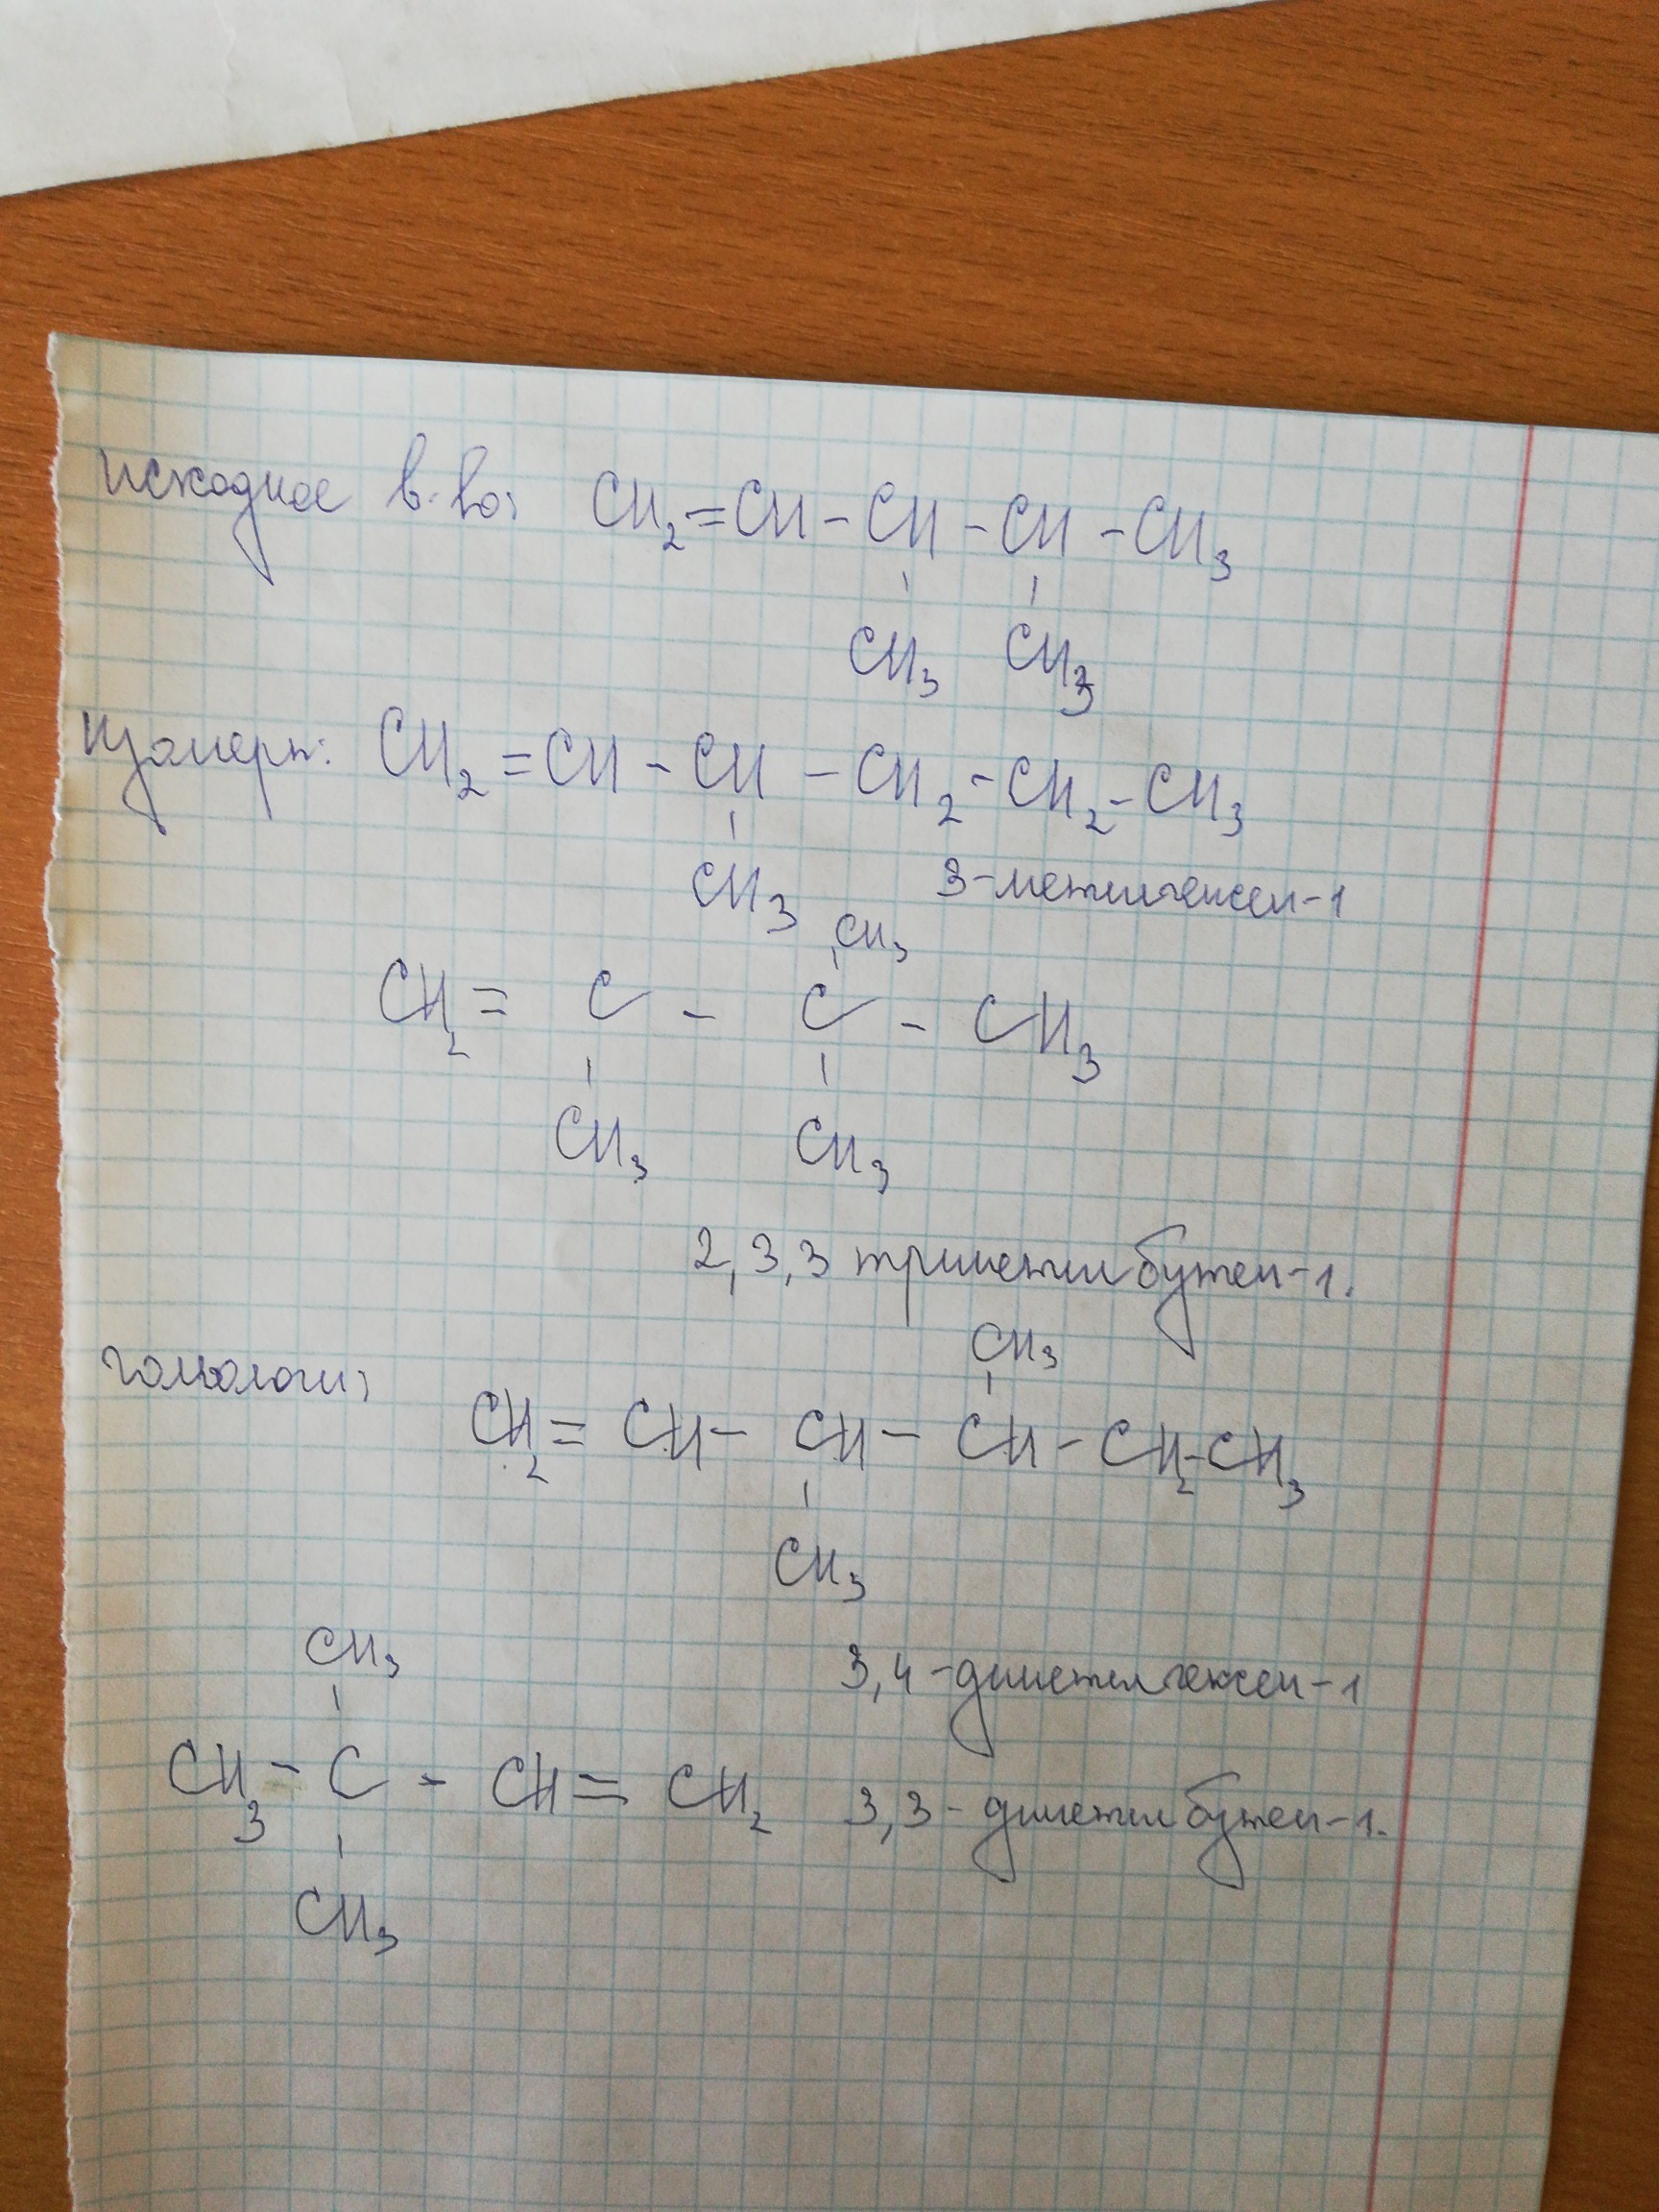 исходное в-во: CH₂=CH-CH-CH-CH₃
CH₃ CH₃
изомеры: CH₂=CH-CH-CH₂-CH₂-CH₃
CH₃ 3-метилгексен-1
CH₃
CH₂= C - C - CH₃
CH₃ CH₃
2,3,3 триметилбутен-1.
гомологи: CH₃
CH₂= CH- CH- CH-CH₂-CH₃
CH₃
3,4-диметилгексен-1
CH₃
CH₃-C - CH= CH₂ 3,3-диметилбутен-1.
CH₃